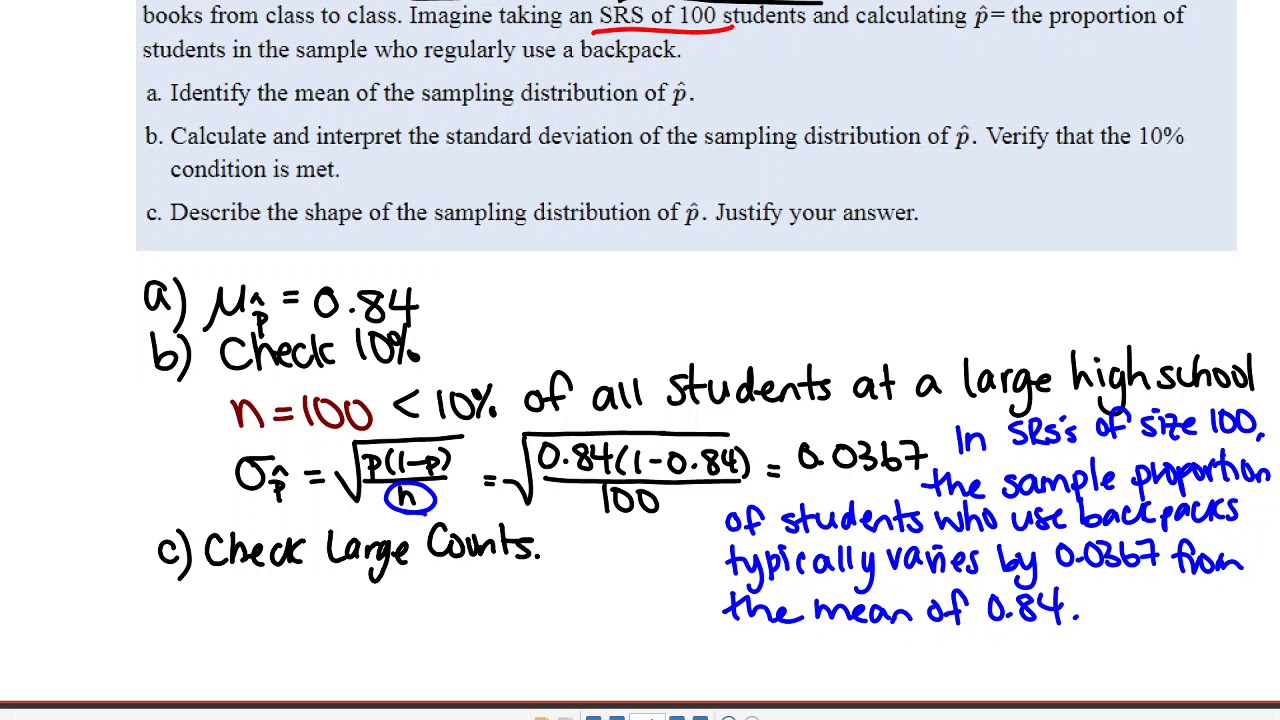 books from class to class. Imagine taking an SRS of 100 students and calculating p̂ = the proportion of
students in the sample who regularly use a backpack.
a. Identify the mean of the sampling distribution of p̂.
b. Calculate and interpret the standard deviation of the sampling distribution of p̂. Verify that the 10%
condition is met.
c. Describe the shape of the sampling distribution of p̂. Justify your answer.
a) μp̂ = 0.84
b) Check 10%
n = 100 < 10% of all students at a large high school
σp̂ = √(p(1-p)/n) = √(0.84(1-0.84)/100) = 0.0367
In SRS's of size 100,
the sample proportion
of students who use backpacks
typically varies by 0.0367 from
the mean of 0.84.
c) Check Large Counts.